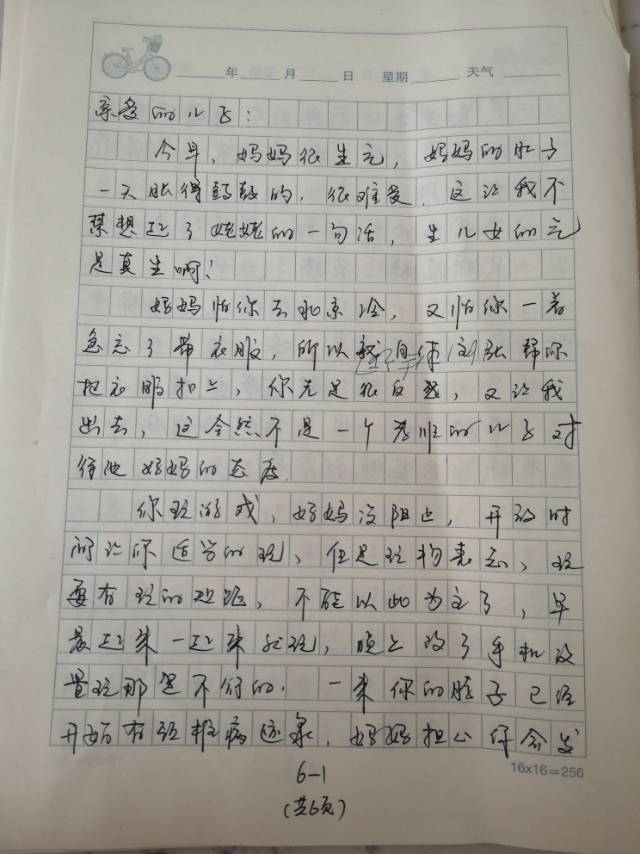 年 月 日 星期 天气
亲爱的儿子:
今早,妈妈很生气,妈妈的肚子
一天胀得鼓鼓的,很难受,这让我不
禁想起了姥姥的一句话,生儿女的气
是真生啊!
妈妈怕你去北京冷,又怕你一着
急忘了带衣服,所以 主张帮你
把衣服扣上,你先是很反感,又让我
出去,这全然不是一个孝顺的儿子对
待他妈妈的态度。
你玩游戏,妈妈没阻止,开放时
间让你适当的玩,但是玩物丧志,玩
要有玩的 ,不能以此为主了,早
晨起来一起来就玩,晚上 了手机没
量玩那是不行的.一来你的脖子已经
开始有颈椎病迹象,妈妈担心你会发
16x16=256
6-1
(共6页)